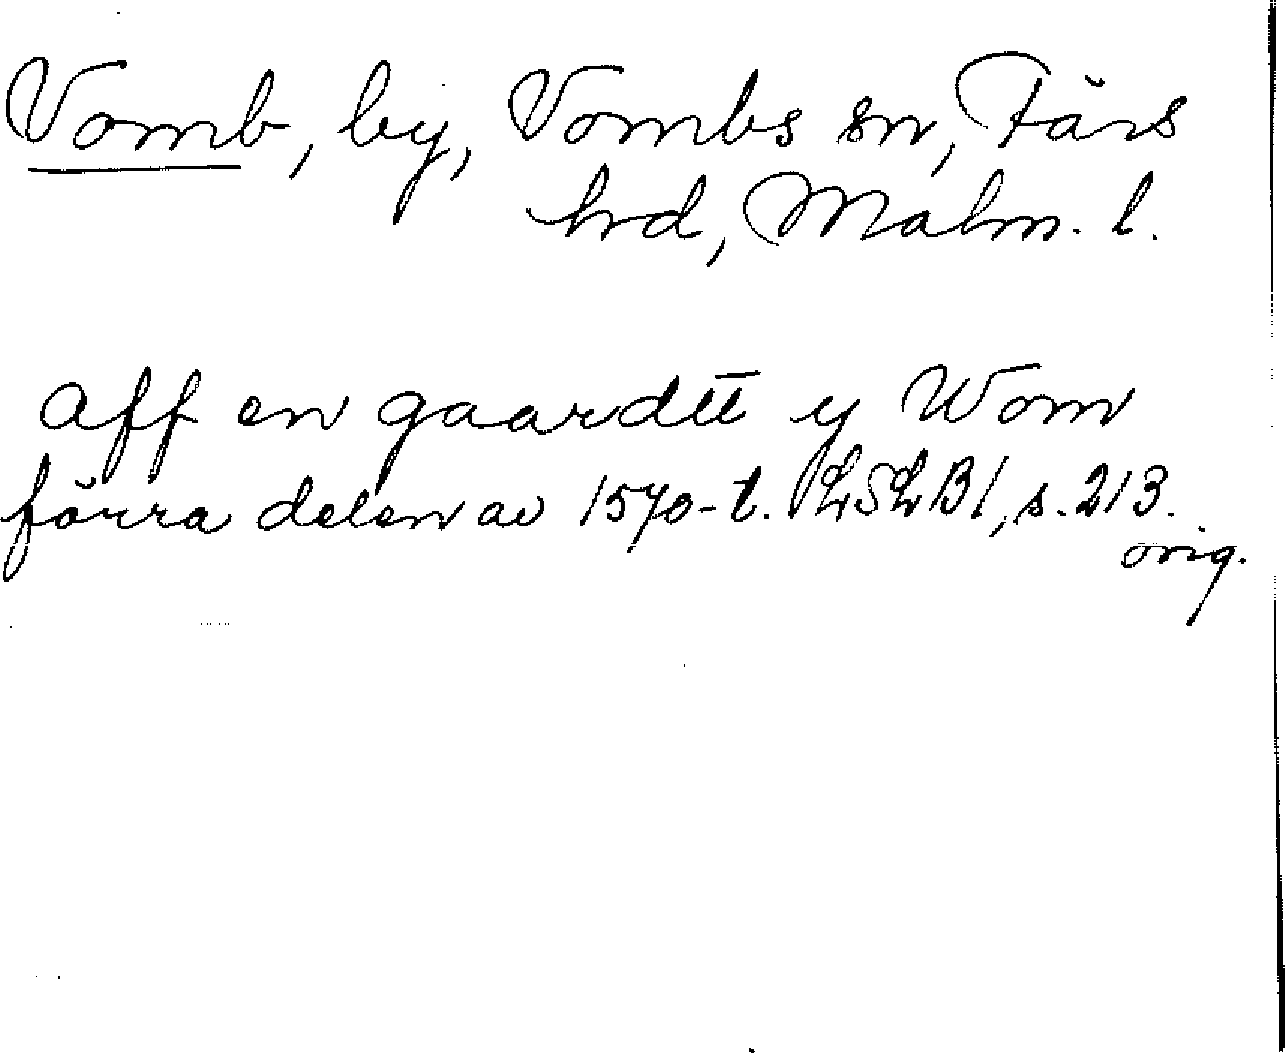 Vomb, by, Vombs sn, Färs
hrd, Malm. l.
Aff en gaard y Wom
förra delen av 1570-t. LSLB1, s. 213.
orig.